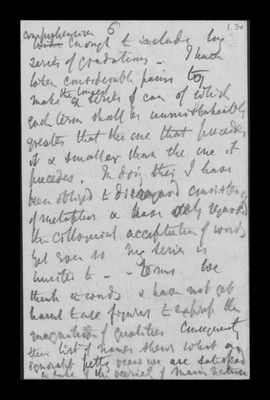 comprehensive 6
enough to include long
series of gradations — I have
taken considerable pains to
make the longest series I can of which
each term shall be unmistakeably
greater than the one that precedes
it & smaller than the one it
precedes. In doing this I have
been obliged to disregard consistency
of metaphor & have only regarded
the colloquial acceptation of words
Yet even so my series is
limited to — — terms. We
think in words & have not yet
learnt to use figures to express the
magnitudes of qualities Consequently
their list of names shews what an
ignorant petty we are satisfied
to take of the varieties of man's nature